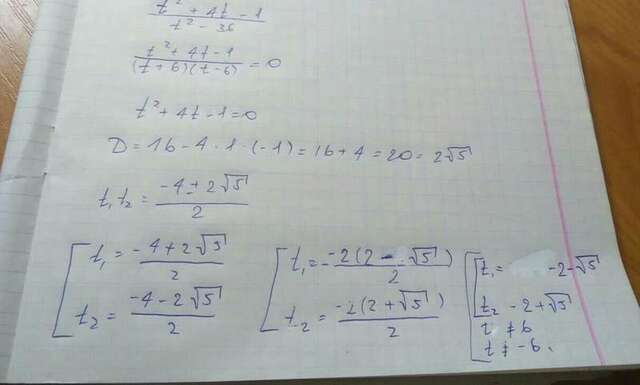 t² + 4t - 1 / t² - 36
t² + 4t - 1 / (t + 6)(t - 6) = 0
t² + 4t - 1 = 0
D = 16 - 4 · 1 · (-1) = 16 + 4 = 20 = 2√5
t₁ t₂ = -4 ± 2√5 / 2
t₁ = -4 + 2√5 / 2
t₂ = -4 - 2√5 / 2
t₁ = -2(2 - √5) / 2
t₂ = -2(2 + √5) / 2
t₁ = -2 - √5
t₂ -2 + √5
t ≠ 6
t ≠ -6.